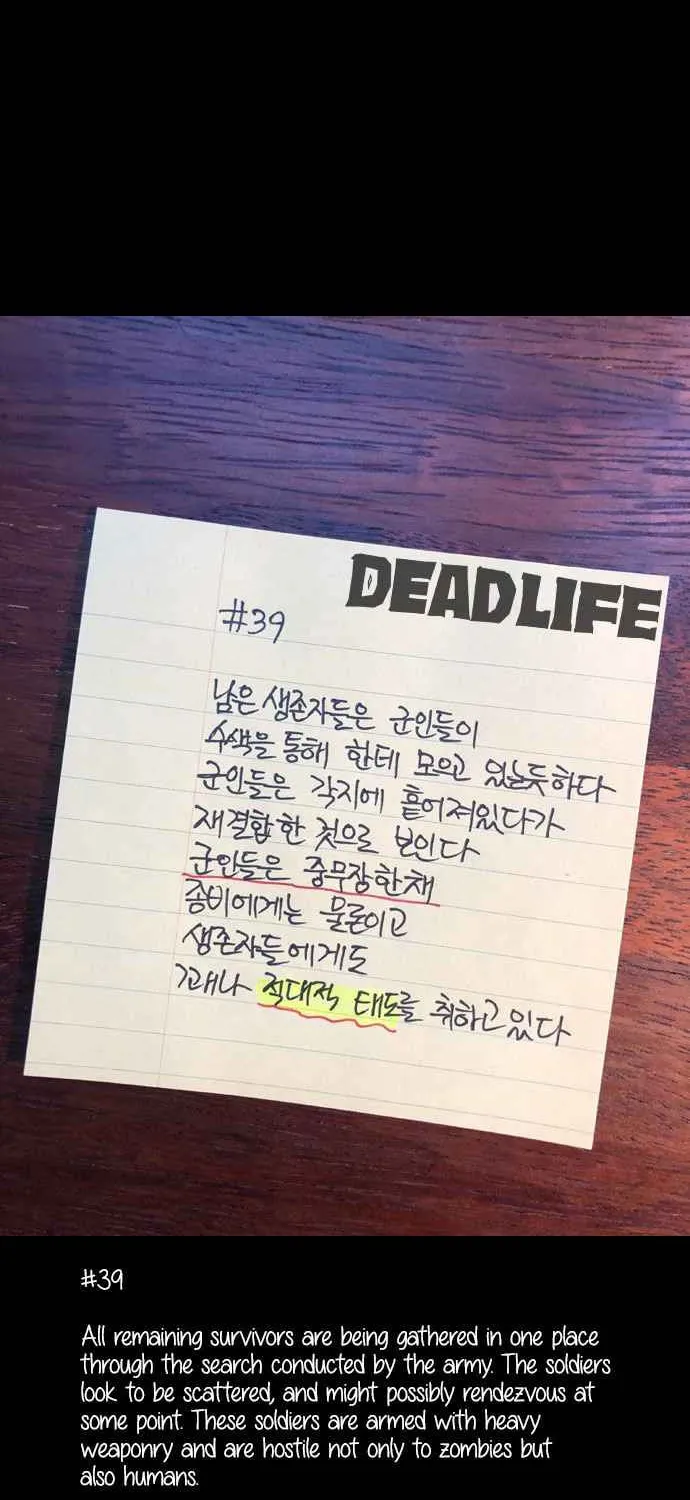 DEAD LIFE
#39
남은 생존자들은 군인들이
수색을 통해 한데 모으고 있는듯하다
군인들은 각지에 흩어져있다가
재결합한 것으로 보인다
군인들은 중무장한채
좀비에게는 물론이고
생존자들에게도
꽤나 적대적 태도를 취하고 있다
#39
All remaining survivors are being gathered in one place
through the search conducted by the army. The soldiers
look to be scattered, and might possibly rendezvous at
some point. These soldiers are armed with heavy
weaponry and are hostile not only to zombies but
also humans.